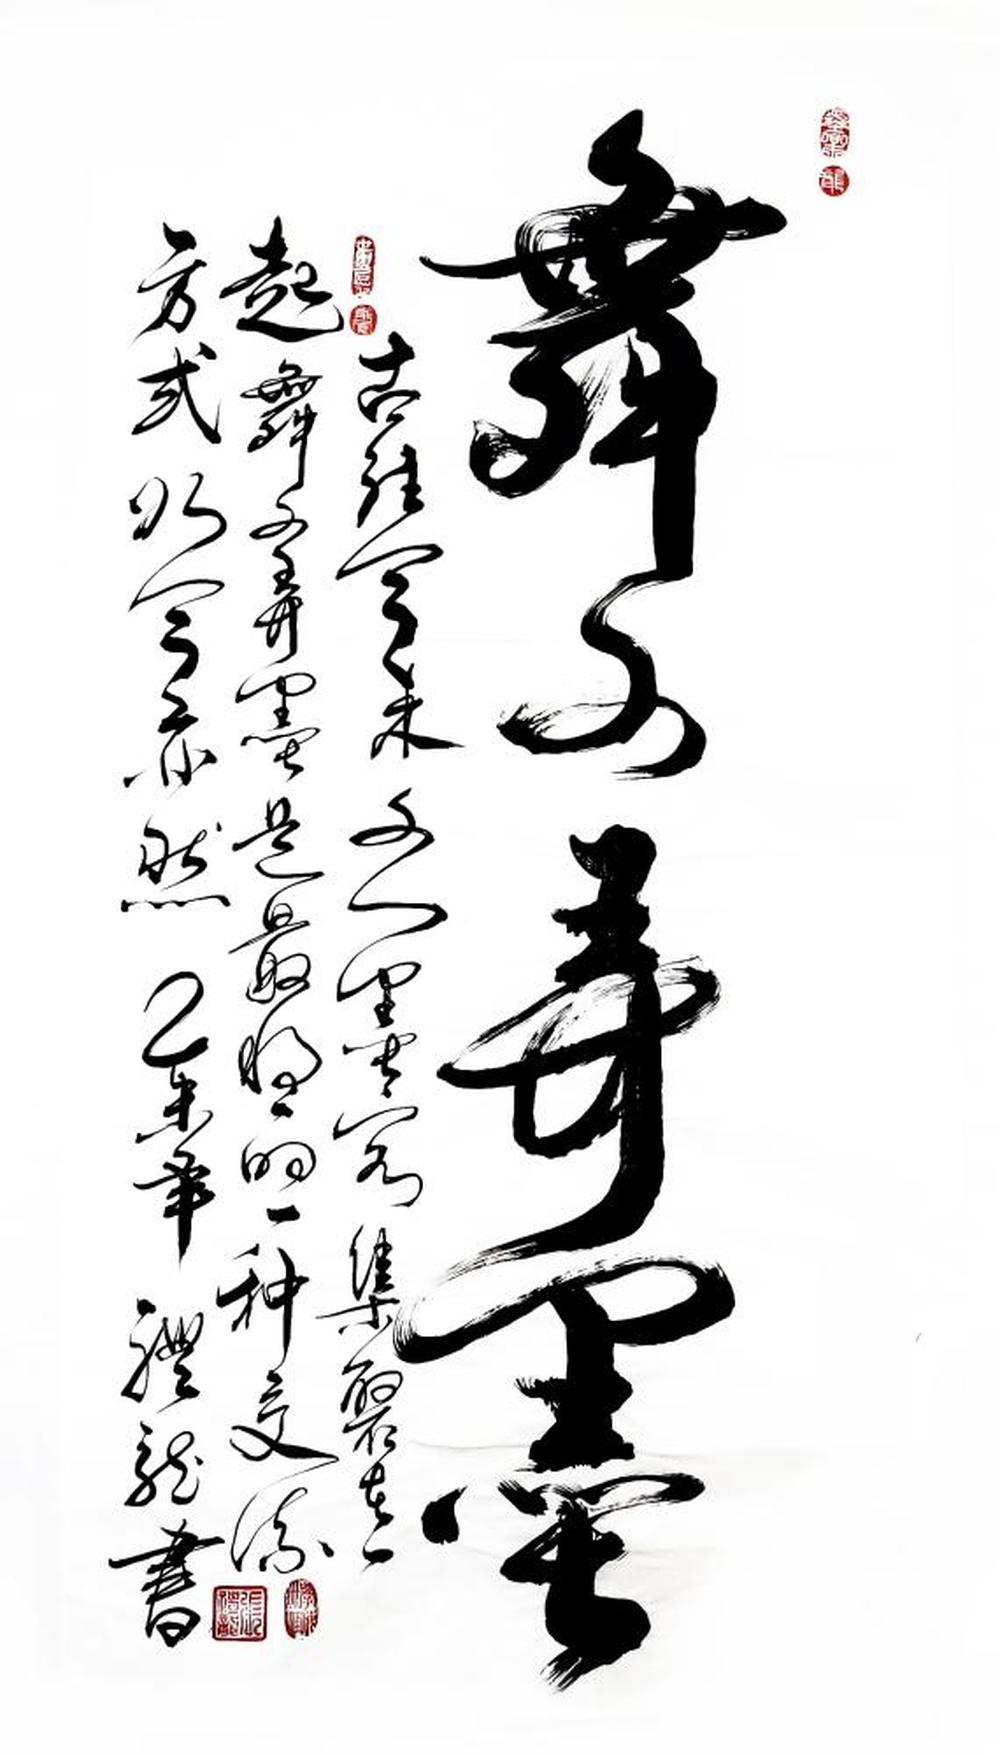 舞文弄墨
古往今来文人墨客集聚在一
起舞文弄墨是最好的一种交流
方式明今亦然乙未年禮龍書